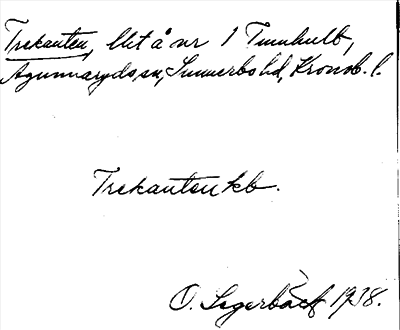 Trekanten, lht å nr 1 Tunnhult,
Agunnaryds sn, Sunnerbo hd, Kronob. l.
Trekanten kb.
O. Segerbäck 1938.